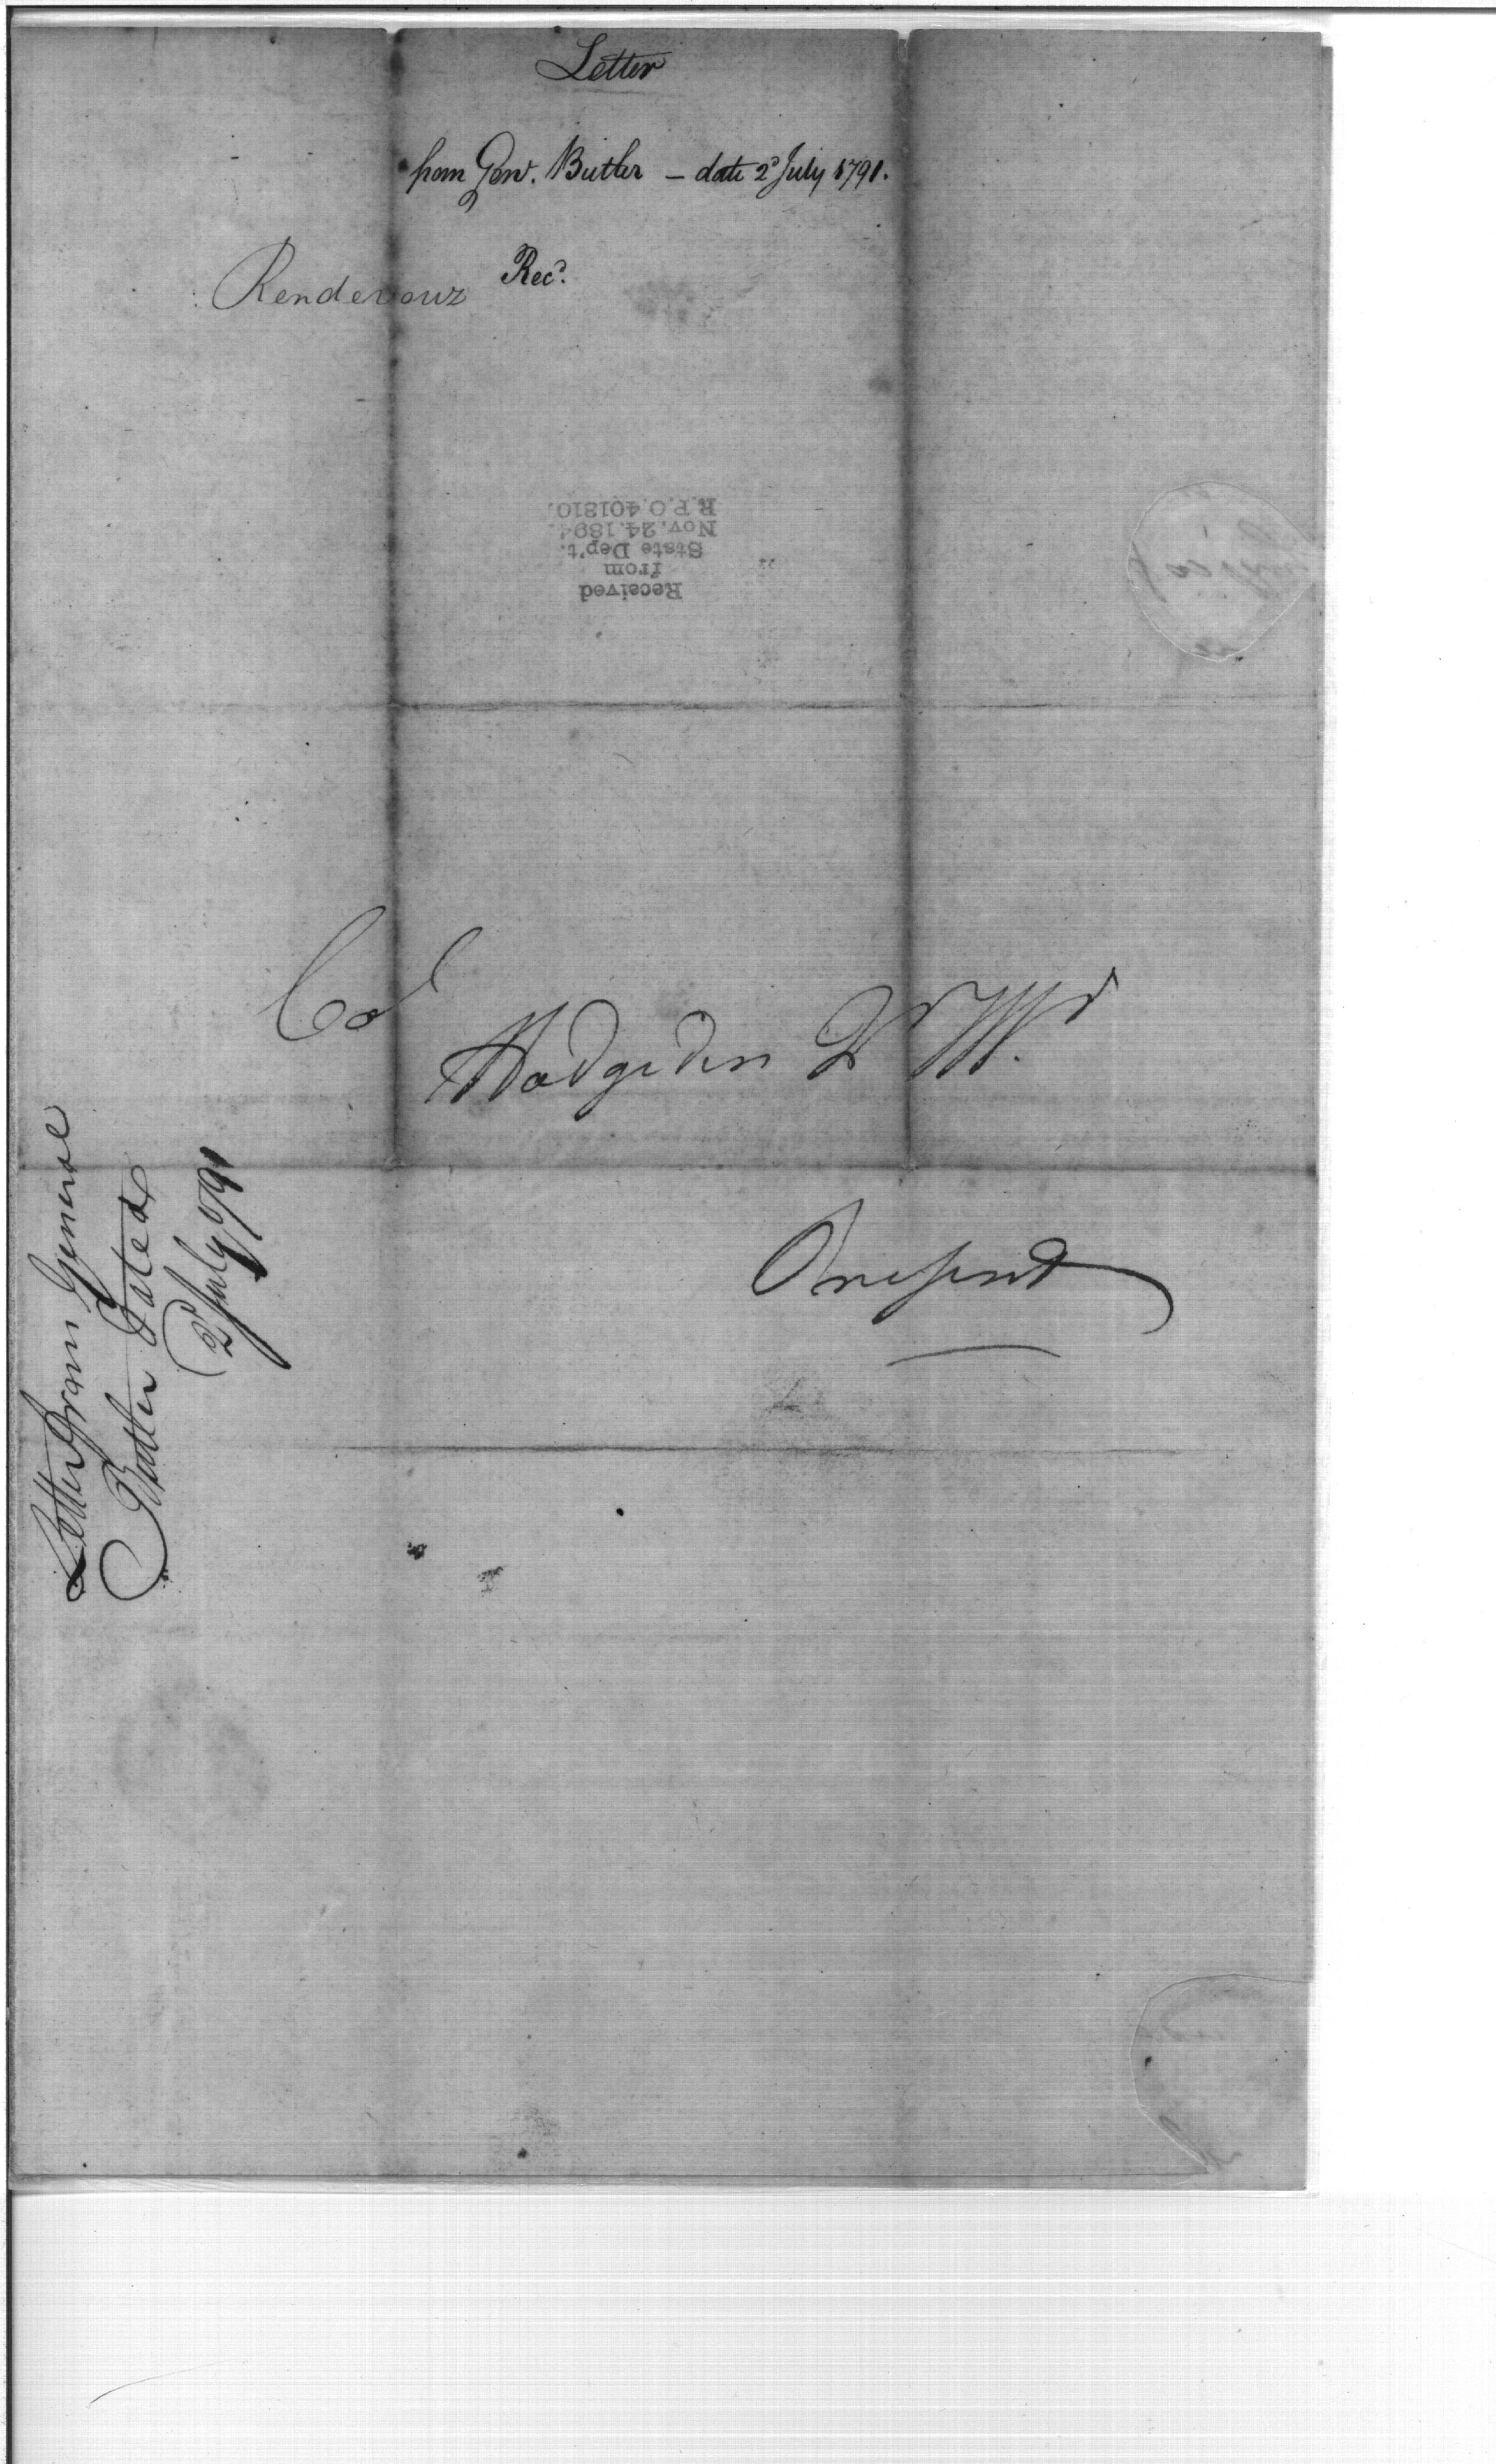 Letter
from Gen. Butler — date 2d July 1791.
Rendevouz
Recd.
Received
from
State Dep't.
Nov. 24. 1894.
R.P.O. 401810.
Col
Hodgdon Qr Mr
Present
Letter from General
Butler Dated
2d July 1791